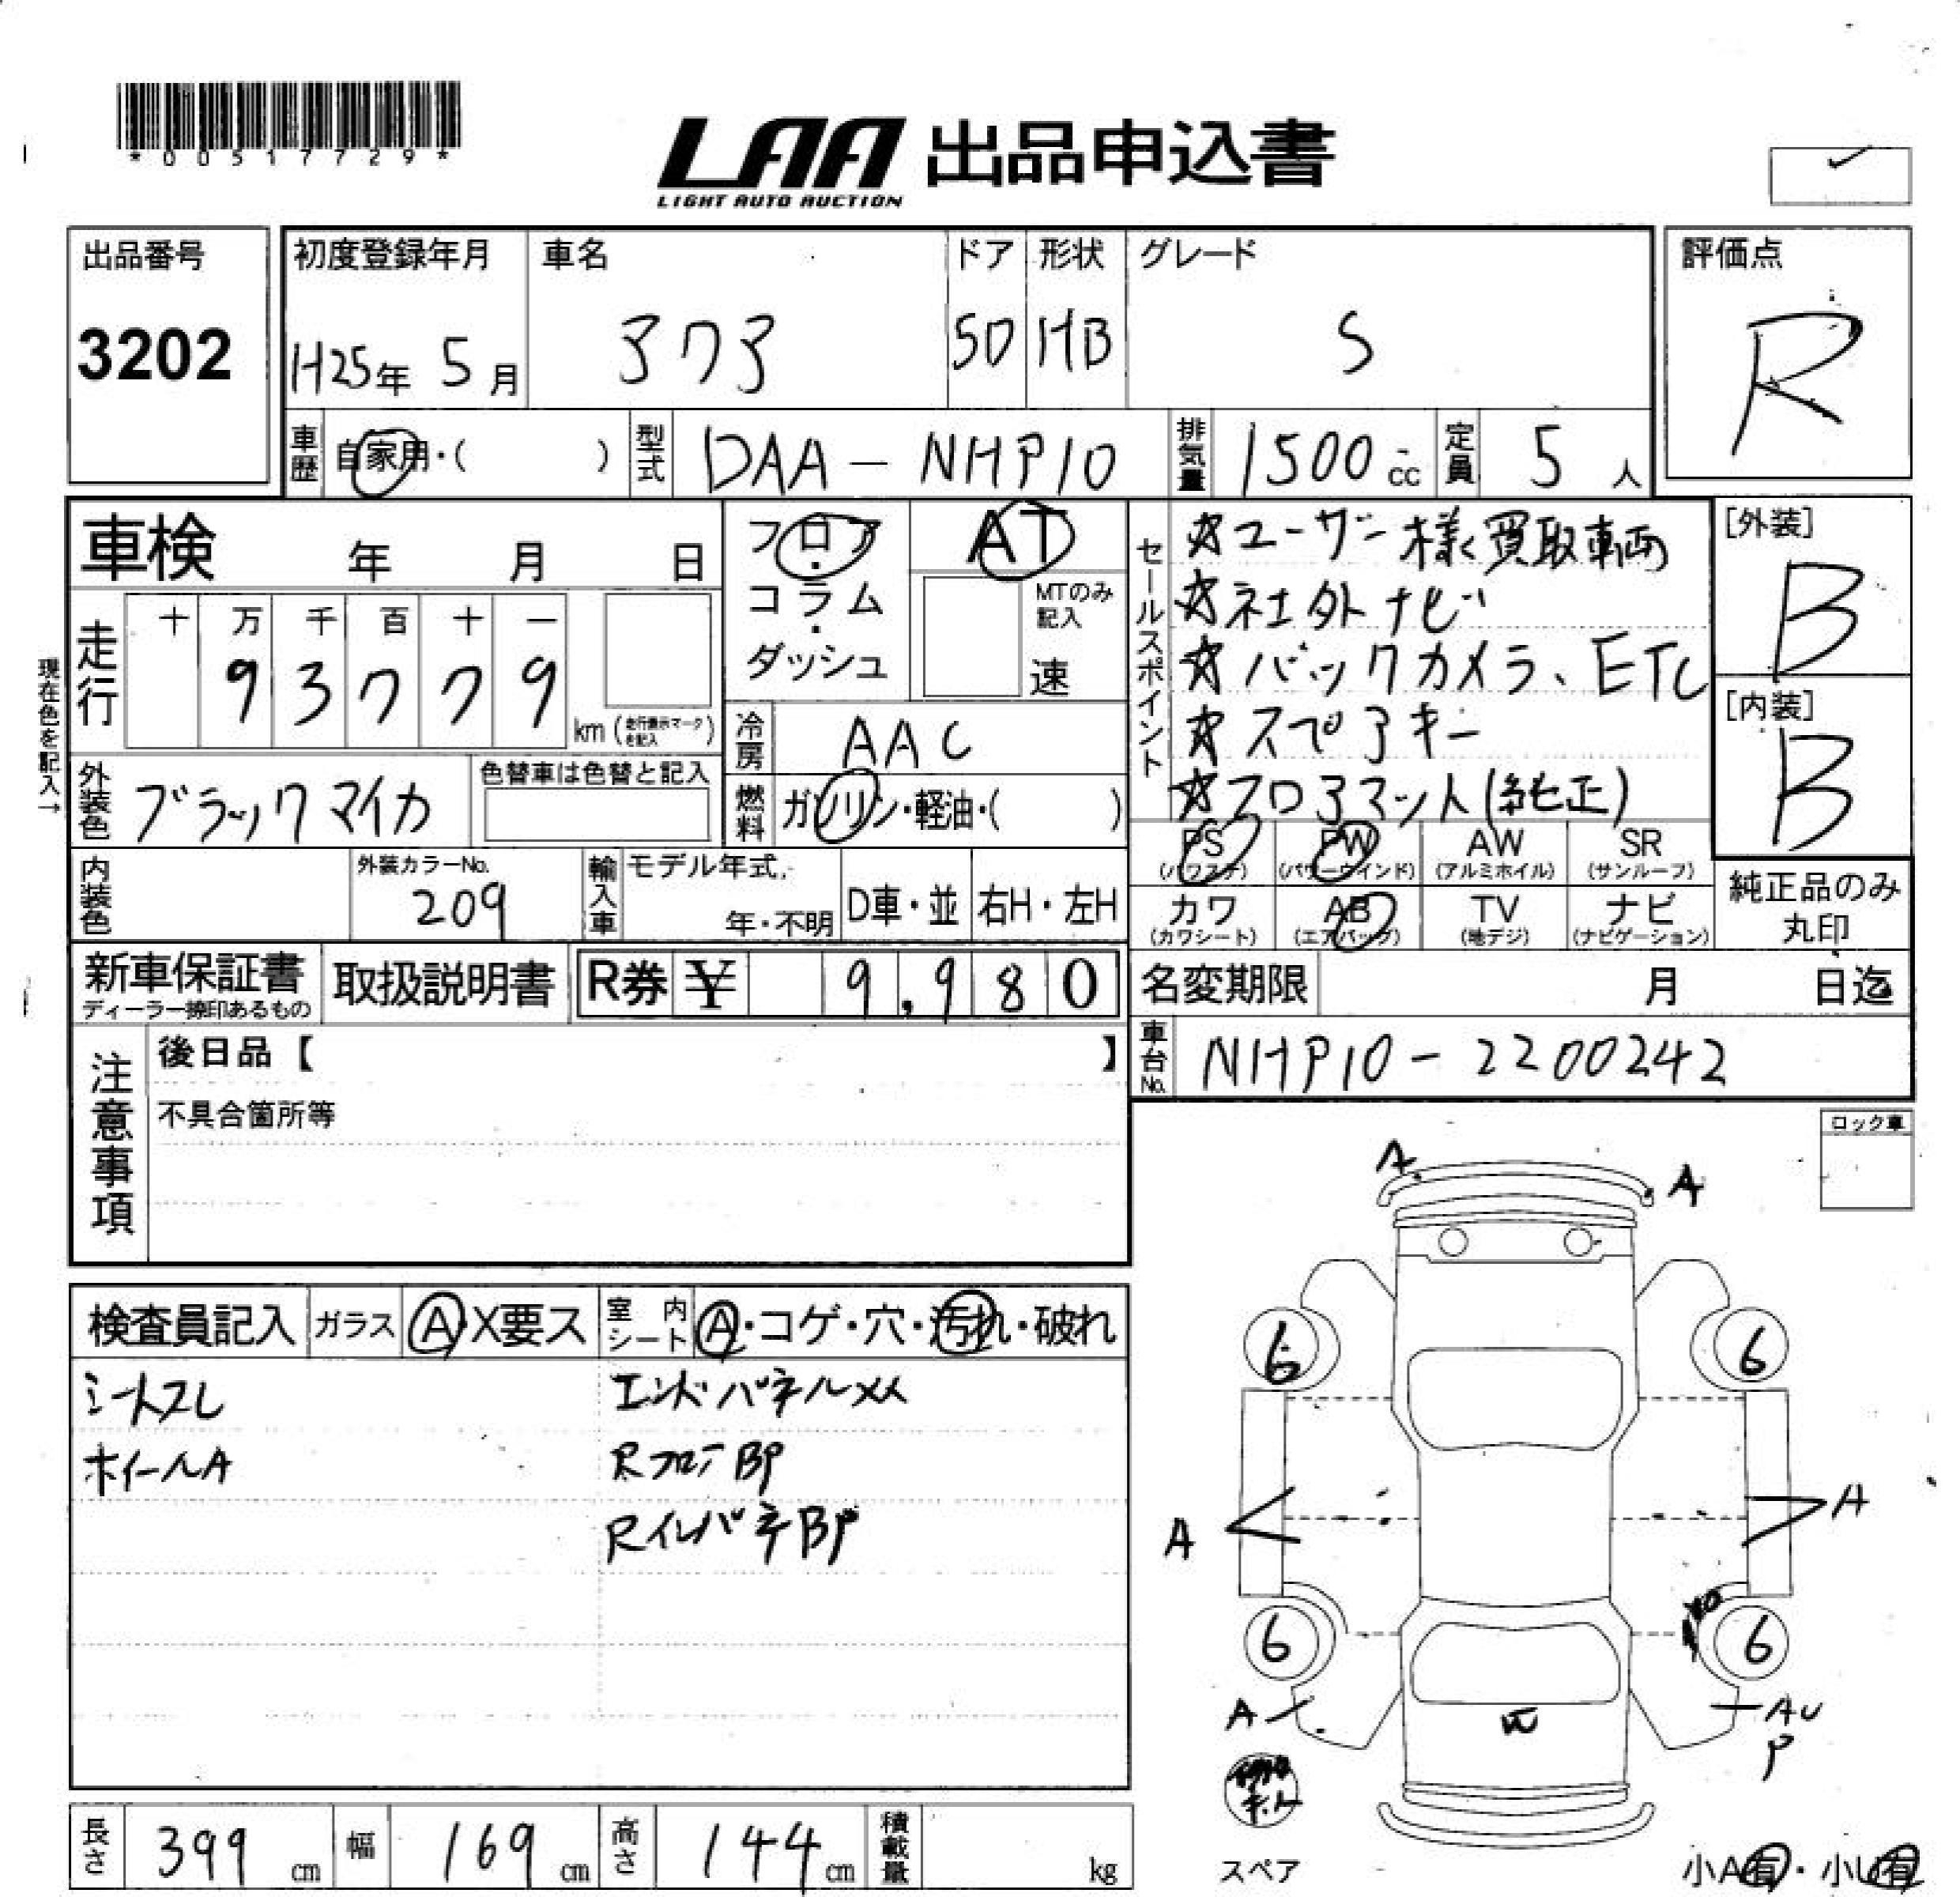 *00517729*
LAA 出品申込書
LIGHT AUTO AUCTION
出品番号
3202
初度登録年月
H25年 5月
車名
アクア
ドア
5D
形状
HB
グレード
S
評価点
R
車歴 自家用・( )
型式 DAA-NHP10
排気量 1500cc
定員 5人
車検 年 月 日
フロア・コラム・ダッシュ
AT
MTのみ記入
速
セールスポイント
☆ユーザー様買取車両
☆社外ナビ
☆バックカメラ、ETC
☆スペアキー
☆フロアマット(純正)
[外装]
B
[内装]
B
現在色を記入→
走行
十 万 千 百 十 一
9 3 7 7 9
km (走行表示マークを記入)
冷房 AAC
外装色 ブラックマイカ
色替車は色替と記入
燃料 ガソリン・軽油・( )
PS (パワステ) PW (パワーウインド) AW (アルミホイル) SR (サンルーフ)
カワ (カワシート) AB (エアバッグ) TV (地デジ) ナビ (ナビゲーション)
純正品のみ丸印
内装色
外装カラーNo.
209
輸入車 モデル年式
年・不明
D車・並
右H・左H
新車保証書
ディーラー捺印あるもの
取扱説明書
R券 ¥ 9,980
名変期限 月 日迄
車台No. NHP10-2200242
注意事項
後日品【 】
不具合箇所等
ロック車
A A
検査員記入
ガラス A・X要ス
室内シート A・コゲ・穴・汚れ・破れ
シートスレ
ホイールA
エンドパネルXX
Rフロア BP
RインパネBP
6 6
A A
6 6
A AU
P
W
スペア
小A有・小U有
長さ 399 cm
幅 169 cm
高さ 144 cm
積載量 kg